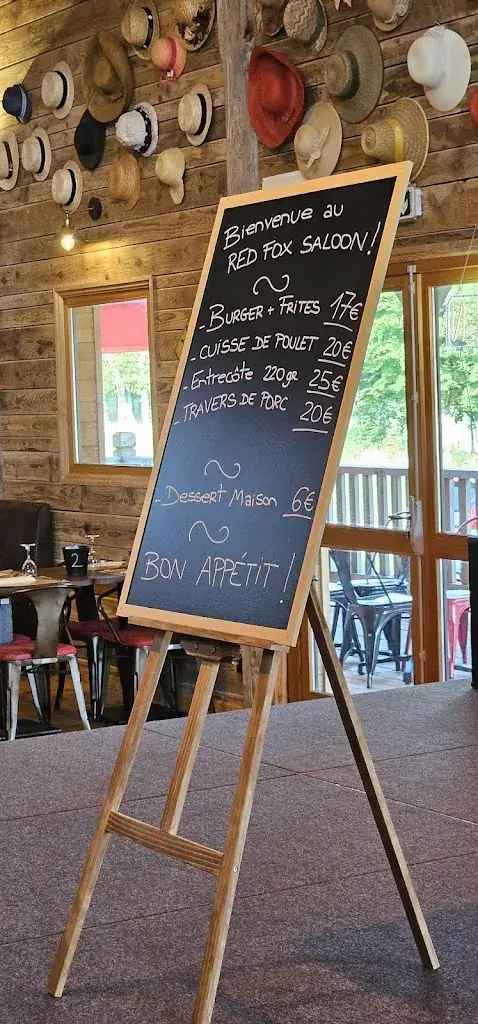 Bienvenue au
RED FOX SALOON !
~
- BURGER + FRITES 17€
- CUISSE DE POULET 20€
- Entrecôte 220gr 25€
- TRAVERS DE PORC 20€
~
- Dessert Maison 6€
~
BON APPÉTIT !
2